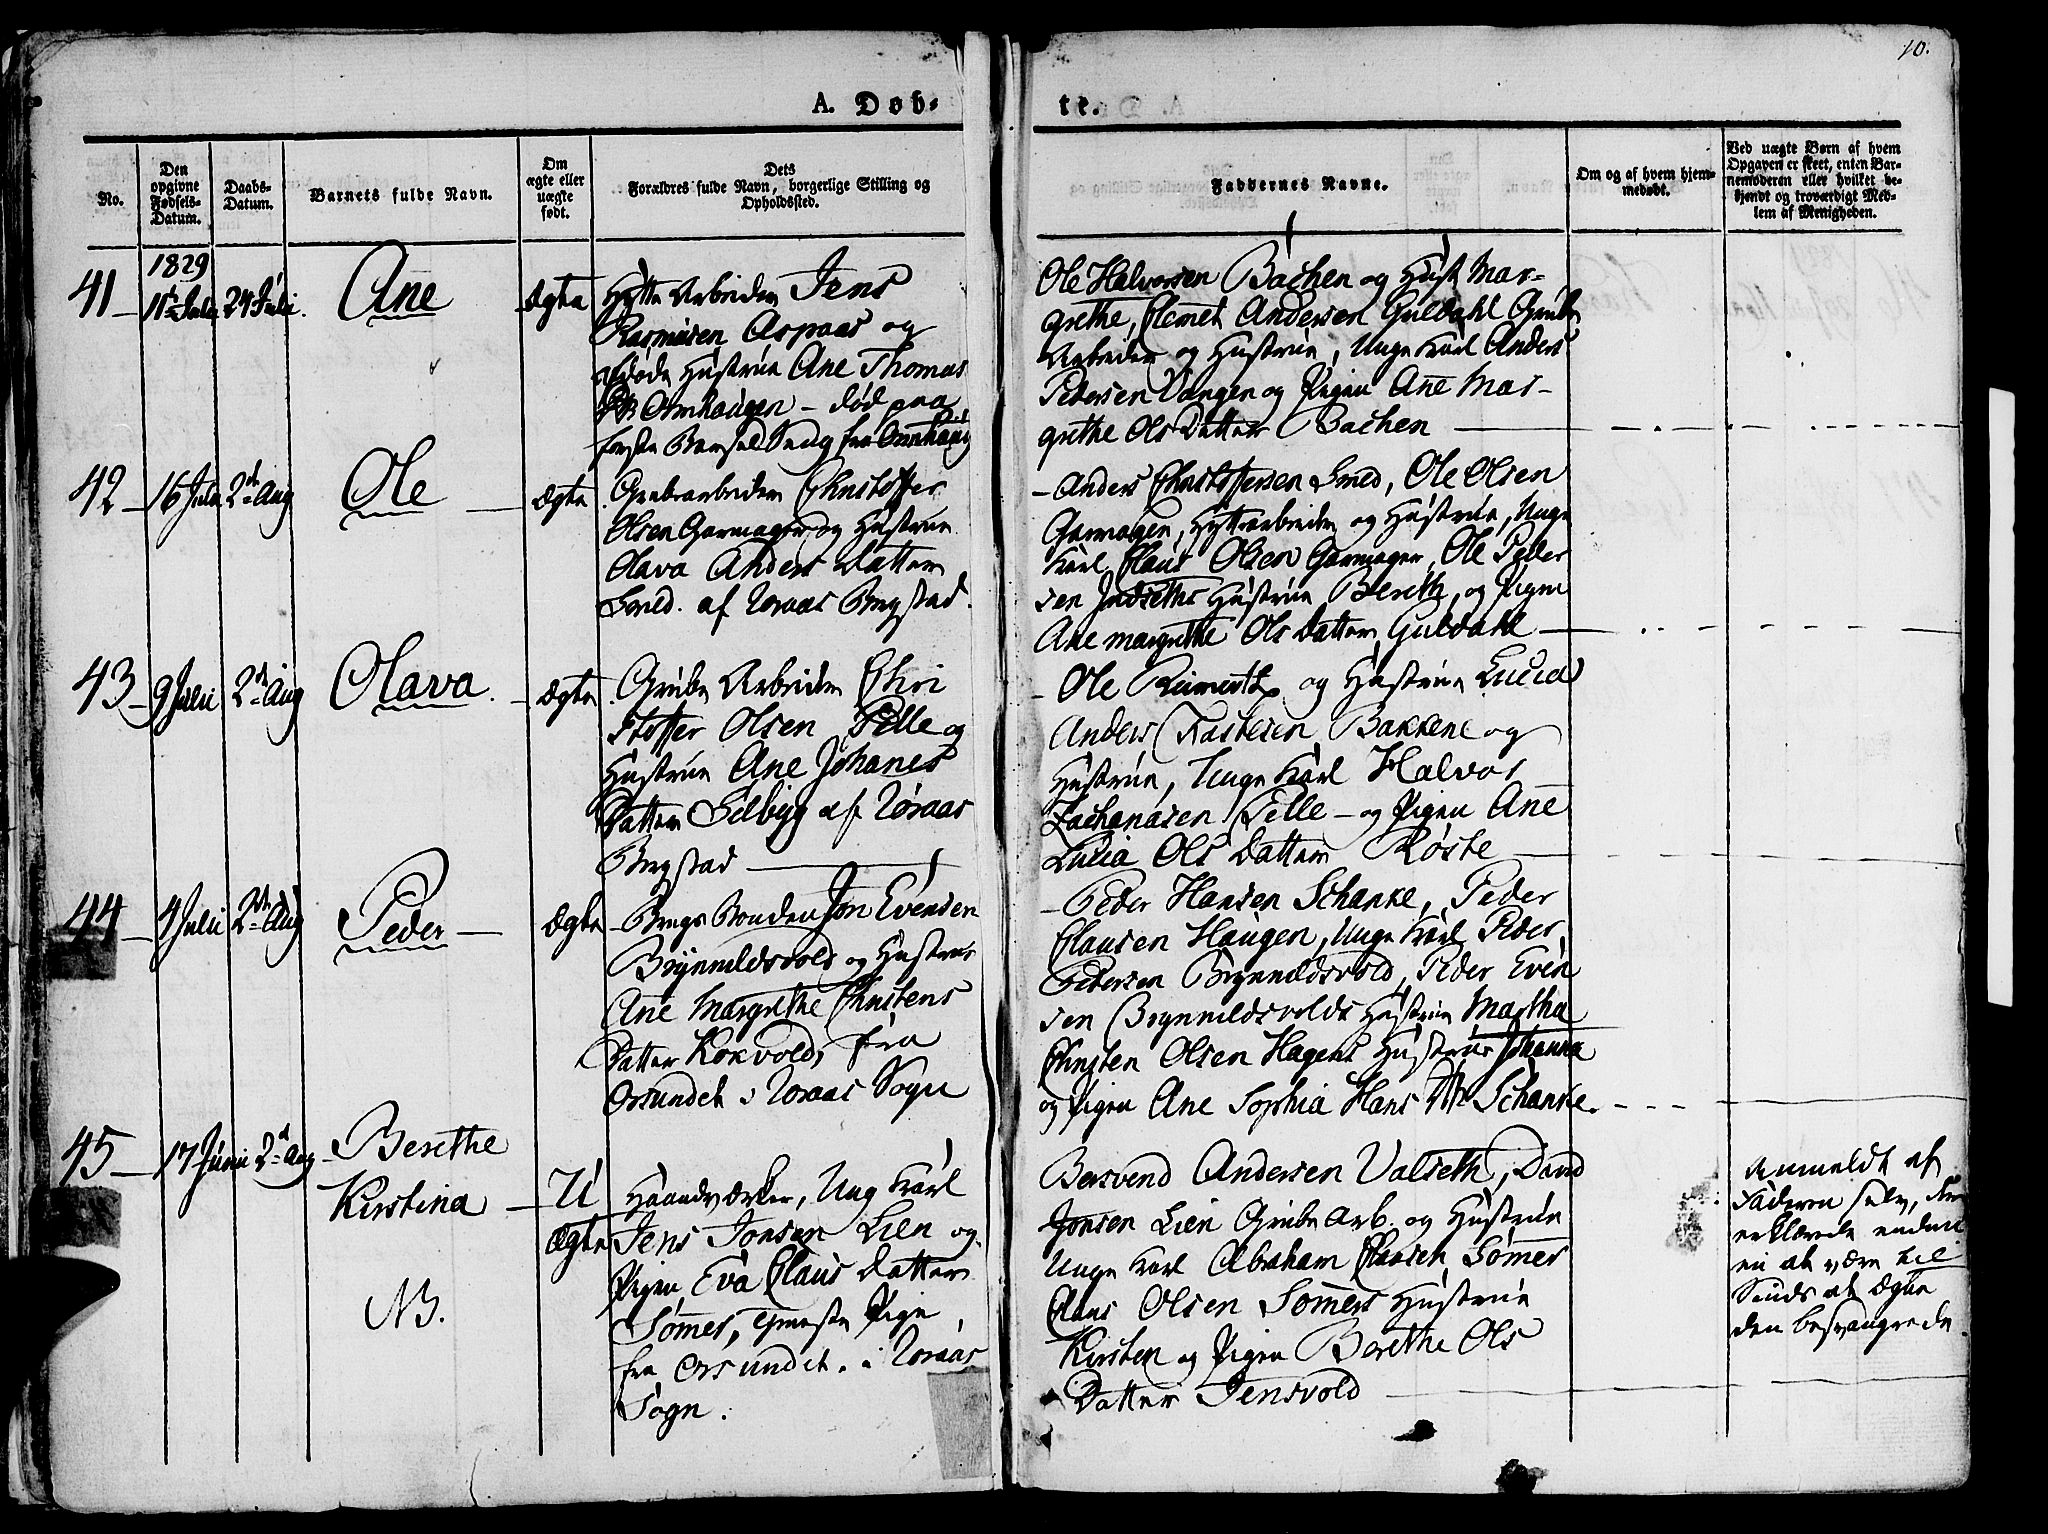 10.
A. Døb-
te.
No.
Den
opgivne
Fødsels-
Datum.
Daabs-
Datum.
Barnets fulde Navn.
Om
ægte eller
uægte
født.
Dets
Forældres fulde Navn, borgerlige Stilling og
Opholdssted.
Faddernes Navne.
Om og af hvem hjem-
medøbt.
Ved uægte Børn af hvem
Opgaven er skeet, enten Bar-
nemoderen eller hvilket be-
kjendt og troværdigt Med-
lem af Menigheden.
1829
41 11 Julii 24 Julii. Ane Ægte
Hytte Arbeider Jens
Rasmusen Aspaas og
Hustrue Ane Thomas
Ormhaugen - død paa
første Barsel Seng fra Ormhaug
Ole Halvorsen Bachen og Hust Mar-
grethe, Clemet Andersen Guldahl Grube
Arbeider og Hustrue, Unge Karl Anders
Pedersen Vangen og Pigen Ane Mar-
grethe Ols Datter Bachen
42 16 Julii 2d Aug Ole Ægte
Grubearbeider Christoffer
Olsen Garmager og Hustrue
Olava Anders Datter
Smed. af Røraas Bergstad.
Anders Christoffersen Smed, Ole Olsen
Garmagen, Hyttearbeider og Hustrue, Unge
Karl Claus Olsen Garmager, Ole Peder
sen Indseths Hustrue Bereth, og Pigen
Ane Margrethe Ols Datter Guldahl
43 9 Julii 2d Aug Olava. Ægte
Grube Arbeider Chri
stoffer Olsen Pelle og
Hustrue Ane Johanes
Datter Selbyg af Røraas
Bergstad
Ole og Hustrue Lucia
Anders Fastesen Bakkene og
Hustrue, Unge Karl Halvor
Zachariasen Pelle - og Pigen Ane
Lucia Ols Datter Røste
44 4 Julii 2d Aug Peder Ægte
Bergs Bonden Jon Evensen
Brynildsvold og Hustrue
Ane Margrethe Christens
Datter Kokvold, fra
Orsundet i Røraas Sogn
Peder Hansen Schanke, Peder
Clausen Haugen, Unge Karl Peder
Pedersen Brynildsvold, Peder Even
sen Brynildsvolds Hustrue Martha
Christen Olsen Hagens Hustrue Johanna
og Pigen Ane Sophia Hans Dtr Schanke.
45 17 Junii 2d Aug Berethe
Kirstina U
Ægte
NB.
Haandværker, Ung Karl
Jens Jonsen Lien og
Pigen Eva Claus Datter
Sømer, Pige,
fra Orsundet. i Røraas
Sogn.
Bersvend Andersen Valseth, David
Jonsen Lien Grube Arb. og Hustrue
Unge Karl Abraham Clausen Sømer
Claus Olsen Sømers Hustrue
Kirsten og Pigen Berethe Ols
Datter Jensvold
Anmeldt af
Faderen selv, som
erklærede
at være til
Sinds at ægte
den besvangrede.